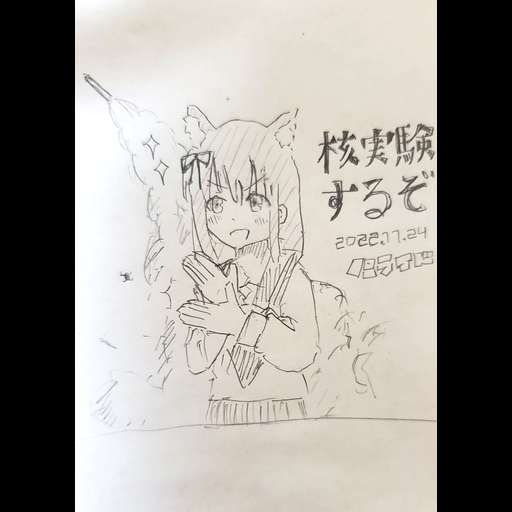 核実験
するぞ
2022.11.24